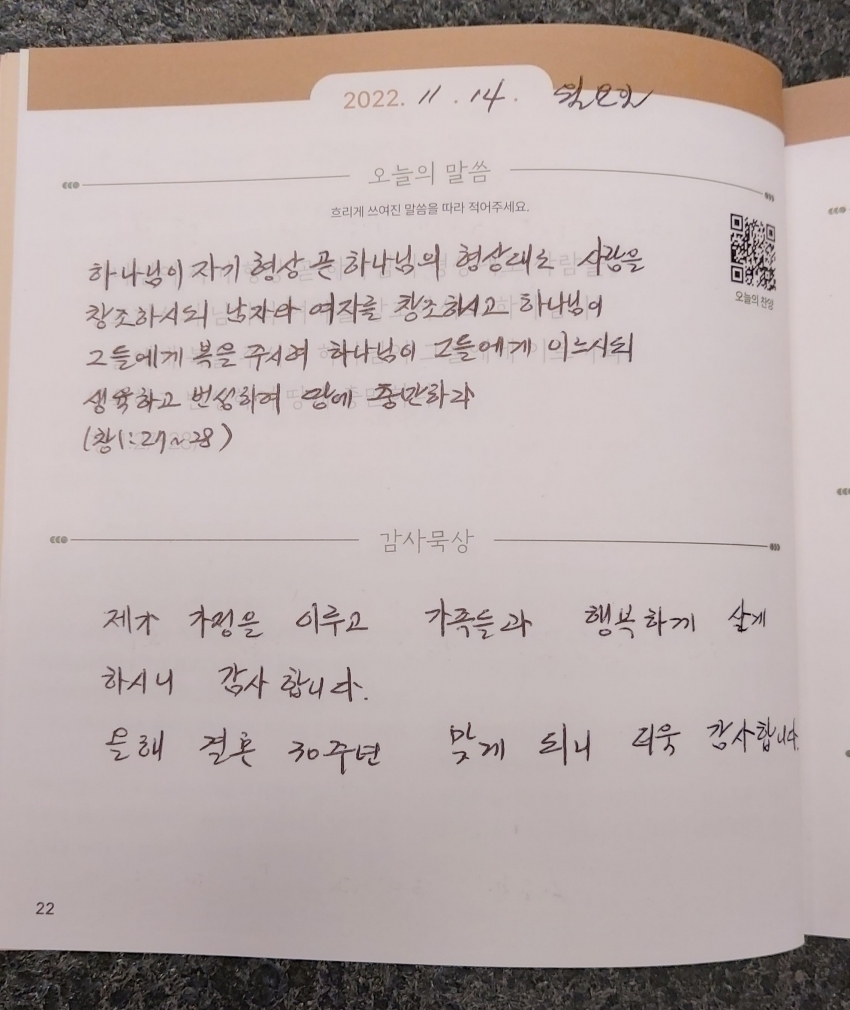 2022. 11. 14. 월요일
오늘의 말씀
흐리게 쓰여진 말씀을 따라 적어주세요.
오늘의 찬양
하나님이 자기 형상 곧 하나님의 형상대로 사람을
창조하시되 남자와 여자를 창조하시고 하나님이
그들에게 복을 주시며 하나님이 그들에게 이르시되
생육하고 번성하여 땅에 충만하라
(창1:27~28)
감사묵상
제가 가정을 이루고 가족들과 행복하게 살게
하시니 감사합니다.
올해 결혼 30주년 맞게 되니 더욱 감사합니다.
22